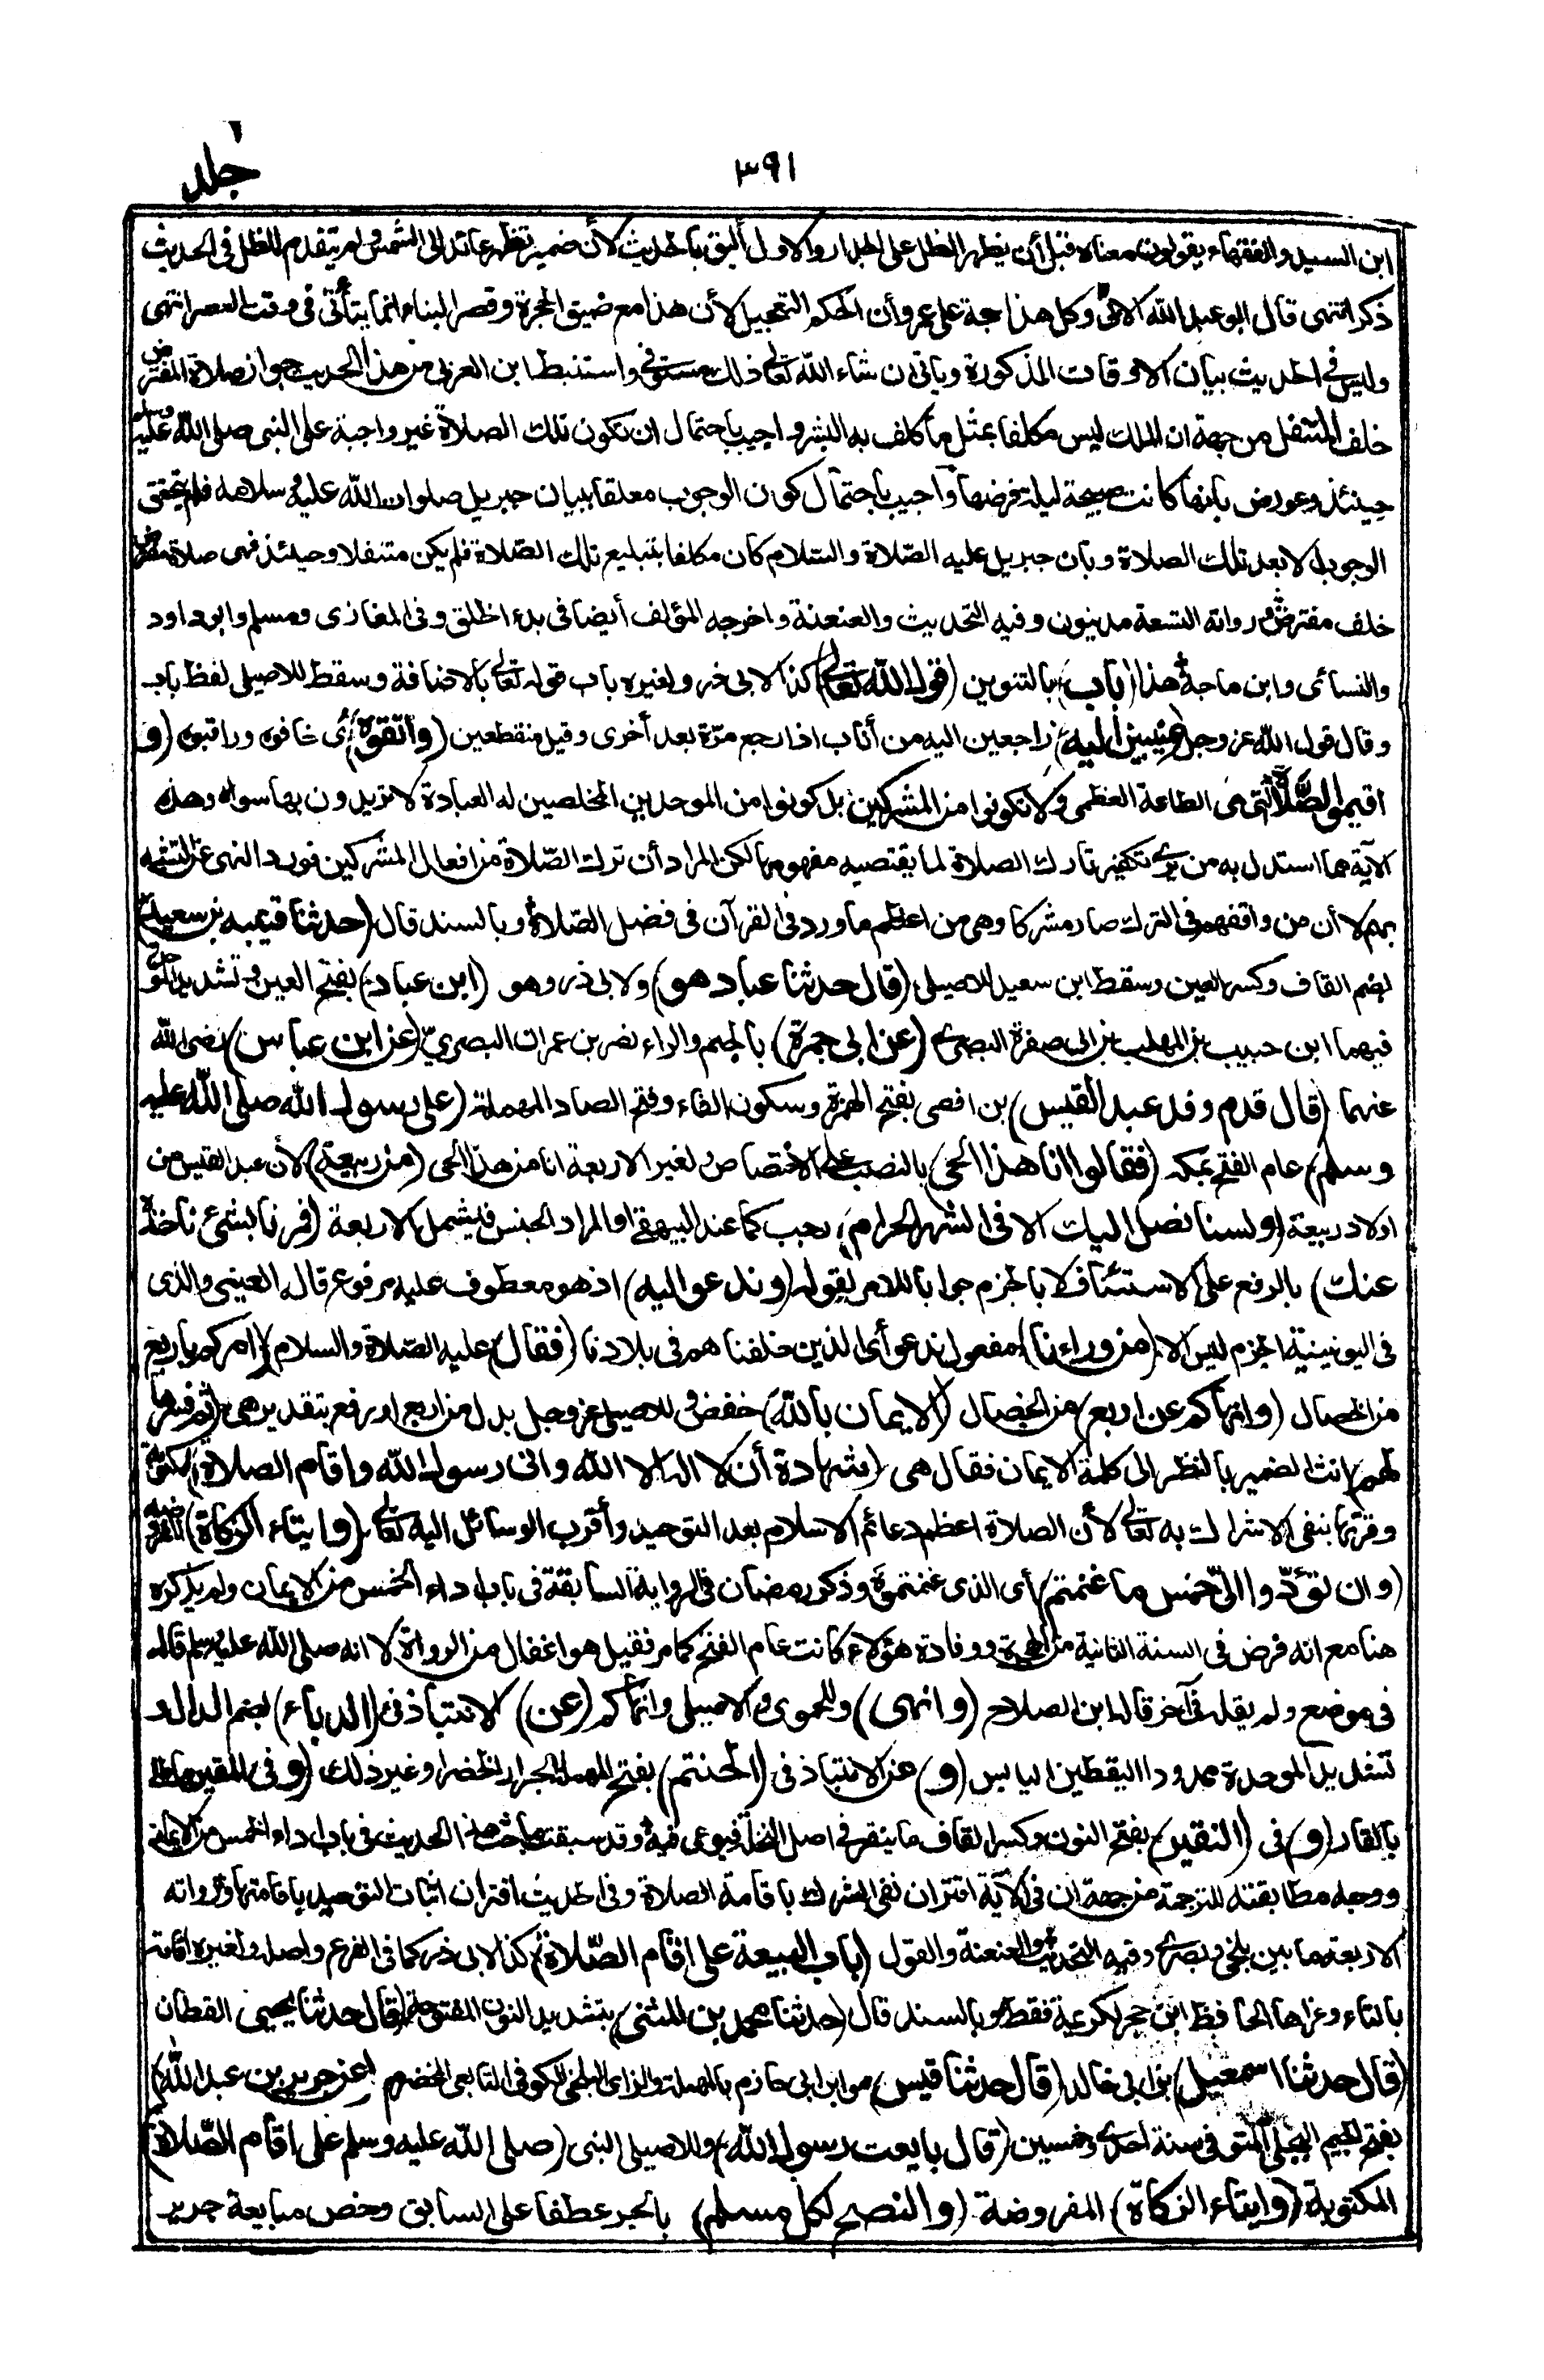 جلد ١
٣٩١
ابن السيد والفقهاء يقولون معناه قبل أن يظهر الظل على الجدار والاول أليق بالحديث لأن ضمير تظهر عائد الى الشمس ولم يتقدم للظل فى الحديث
ذكر انتهى قال ابو عبد الله الابى وكل هذا حجة على عمر وأن الحكم التعجيل لأن هذا مع ضيق الحجرة وقصر البناء انما يتأتى فى وقت العصر انتهى
وليس فى الحديث بيان الاوقات المذكورة وياتى ان شاء الله تعالى ذلك مستوفى واستنبط ابن العربى من هذا الحديث جواز صلاة المفترض
خلف المتنفل من جهة ان الملك ليس مكلفا بمثل ما كلف به البشر واجيب باحتمال ان تكون تلك الصلاة غير واجبة على النبى صلى الله عليه وسلم
حينئذ وعورض بانها كانت صبيحة ليلة فرضها وأجيب باحتمال كون الوجوب معلقا ببيان جبريل صلوات الله عليه وسلامه فلم يتحقق
الوجوب الا بعد تلك الصلاة وبان جبريل عليه الصلاة والسلام كان مكلفا بتبليغ تلك الصلاة فلم يكن متنفلا وحينئذ فهى صلاة مفترض
خلف مفترض ورواته التسعة مدنيون وفيه التحديث والعنعنة واخرجه المؤلف أيضا فى بدء الخلق وفى المغازى ومسلم وابو داود
والنسائى وابن ماجة هذا (باب) بالتنوين (قول الله تعالى) كذا لابى ذر ولغيره باب قوله تعالى بالاضافة وسقط للاصيلى لفظ باب
وقال قول الله عز وجل (منيبين اليه) راجعين اليه من أناب اذا رجع مرّة بعد أخرى وقيل منقطعين (واتقوه) أى خافوه وراقبوه (و
اقيموا الصلاة) التى هى الطاعة العظمى (ولا تكونوا من المشركين) بل كونوا من الموحدين المخلصين له العبادة لا تريدون بها سواه وهذه
الآية مما استدل به من يرى تكفير تارك الصلاة لما يقتضيه مفهومها لكن المراد أن ترك الصلاة من افعال المشركين فورد النهى عن التشبه
بهم لا أن من وافقهم فى الترك صار مشركا وهى من اعظم ما ورد فى القرآن فى فضل الصلاة وبالسند قال (حدثنا قتيبه بن سعيد)
بضم القاف وكسر العين وسقط ابن سعيد للاصيلى (قال حدثنا عباد هو) ولابى ذر وهو (ابن عباد) بفتح العين وتشديد الموحدة
فيهما ابن حبيب بن المهلب بن ابى صفرة البصرى (عن ابى جمرة) بالجيم والراء نصر بن عمران البصرىّ (عن ابن عباس) رضى الله
عنهما (قال قدم وفد عبد القيس) بن افصى بفتح الهمزة وسكون الفاء وفتح الصاد المهملة (على رسول الله صلى الله عليه
وسلم) عام الفتح بمكة (فقالوا انا هذا الحى) بالنصب على الاختصاص ولغير الاربعة انا من هذا الحى (من ربيعة) لأن عبد القيس من
اولاد ربيعة (ولسنا نصل اليك الا فى الشهر الحرام) رجب كما عند البيهقى او المراد الجنس فيشمل الاربعة (فمرنا بشىء ناخذه
عنك) بالرفع على الاستئناف لا بالجزم جوابا للامر لقوله (وندعو اليه) اذ هو معطوف عليه مرفوع قاله العينى والذى
فى اليونينية الجزم ليس الا (من وراءنا) مفعول ندعو أى الذين خلفنا هم فى بلادنا (فقال) عليه الصلاة والسلام (امركم باربع)
من الخصال (وانهاكم عن اربع) من الخصال (الايمان بالله) خفض وللاصيلى عز وجل بدل من اربع او رفع بتقدير هى (ثم فسرها
لهم) انث الضمير بالنظر الى كلمة الايمان فقال هى (شهادة أن لا اله الا الله وانى رسول الله واقام الصلاة) المكتوبة
وقرنها بنفى الاشراك به تعالى لأن الصلاة اعظم دعائم الاسلام بعد التوحيد وأقرب الوسائل اليه تعالى (وايتاء الزكاة) المفروضة
(وان تؤدّوا الىّ خمس ما غنمتم) أى الذى غنمتموه وذكر رمضان فى الرواية السابقة فى باب اداء الخمس من الايمان ولم يذكره
هنا مع انه فرض فى السنة الثانية من الهجرة ووفادة هؤلاء كانت عام الفتح كما مر فقيل هو اغفال من الرواة لا انه صلى الله عليه وسلم قاله
فى موضع ولم يقله فى آخر قاله ابن الصلاح (وانهى) وللحموى والاصيلى وانهاكم (عن) الانتباذ فى (الدباء) بضم الدال و
تشديد الموحدة ممدودا اليقطين اليابس (و) عن الانتباذ فى (الحنتم) بفتح المهملة الجرار الخضر او غير ذلك (وفى المقير) ما طلى
بالقار (و) فى (النقير) بفتح النون وكسر القاف ما ينقر فى اصل النخلة فيوعى فيه وقد سبقت مباحث هذا الحديث فى باب اداء الخمس من الايمان
ووجه مطابقته للترجمة من جهة ان فى الآية اقتران نفى الشرك باقامة الصلاة وفى الحديث اقتران اثبات التوحيد باقامتها ورواته
الاربعة ما بين بلخى وبصرى وفيه التحديث والعنعنة والقول (باب البيعة على اقام الصلاة) كذا لابى ذر كما فى الفرع واصله ولغيره اقامة
بالتاء وعزاها الحافظ ابن حجر لكريمة فقط وبالسند قال (حدثنا محمد بن المثنى) بتشديد النون المفتوحة (قال حدثنا يحيى) القطان
(قال حدثنا اسمعيل) بن ابى خالد (قال حدثنا قيس) هو ابن ابى حازم بالمهملة والزاى البجلى الكوفى التابعى المخضرم (عن جرير بن عبد الله)
بفتح الجيم البجلى المتوفى سنة احدى وخمسين (قال بايعت رسول الله) وللاصيلى النبى (صلى الله عليه وسلم على اقام الصلاة)
المكتوبة (وايتاء الزكاة) المفروضة (والنصح لكل مسلم) بالجر عطفا على السابق وخص مبايعة جرير